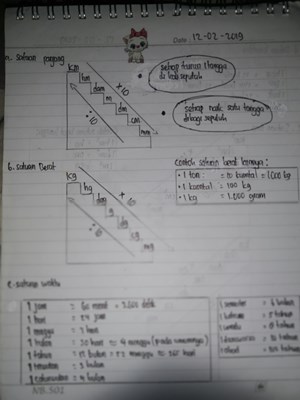 Date 12-02-2019
a. Satuan panjang
km
hm
dam
m
dm
cm
mm
x 10
: 10
setiap turun 1 tangga
di kali sepuluh
setiap naik satu tangga
dibagi sepuluh
b. Satuan Berat
kg
hg
dag
g
dg
cg
mg
x 10
: 10
Contoh satuan berat lainnya:
• 1 ton : = 10 kuintal = 1000 kg
• 1 kuintal = 100 kg
• 1 kg = 1.000 gram
c. satuan waktu
1 jam = 60 menit = 3.600 detik
1 hari = 24 jam
1 minggu = 7 hari
1 bulan = 30 hari = 4 minggu
1 tahun = 12 bulan = 52 minggu = 365 hari
1 = 3 bulan
1 caturwulan = 4 bulan
1 semester = 6 bulan
1 = 8 tahun
1 dasawarsa = 10 tahun
1 abad = 100 tahun